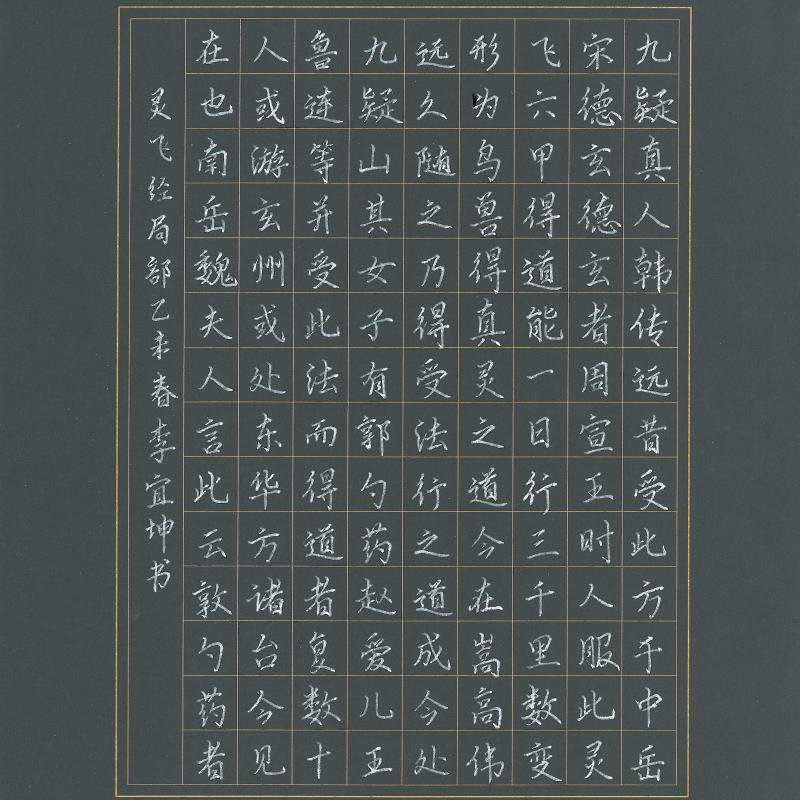 九疑真人韩传远昔受此方于中岳
宋德玄德玄者周宣王时人服此灵
飞六甲得道能一日行三千里数变
形为鸟兽得真灵之道今在嵩高伟
远久随之乃得受法行之道成今处
九疑山其女子有郭勺药赵爱儿王
鲁连等并受此法而得道者复数十
人或游玄州或处东华方诸台今见
在也南岳魏夫人言此云敦勺药者
灵飞经局部乙未春李宜坤书